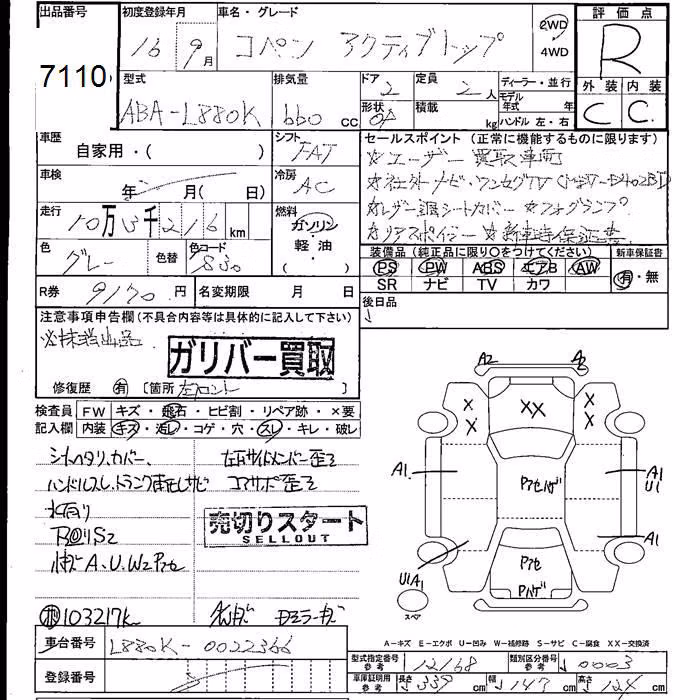 出品番号
7110
初度登録年月
16年 9月
車名・グレード
コペン アクティブトップ
2WD
4WD
評価点
R
外装 内装
C C
型式
ABA-L880K
排気量
660 cc
ドア
2
形状
定員
2人
積載
kg
ディーラー・並行
モデル
年式 年
ハンドル 左・右
車歴
自家用・( )
シフト
FAT
車検
年 月( 日)
冷房
AC
走行
10万3千216 km
燃料
ガソリン
軽油
( )
色
グレー
色替
色コード
S30
R券
9170円
名変期限 月 日
セールスポイント (正常に機能するものに限ります)
☆ユーザー買取車両
☆社外ナビ・ワンセグTV
☆レザー調シートカバー ☆フォグランプ
☆リアスポイラー ☆新車時保証書
装備品 (純正品に限り○をつけてください)
PS PW ABS エアB AW
SR ナビ TV カワ
新車保証書
有・無
後日品
注意事項申告欄(不具合内容等は具体的に記入して下さい)
必抹端出品
ガリバー買取
修復歴 有 [箇所 左フロント ]
検査員 FW キズ・飛石・ヒビ割・リペア跡・×要
記入欄 内装 キズ・汚レ・コゲ・穴・スレ・キレ・破レ
シートヘタリ、カバー、
ハンドルスレ、トランク車正しサビ
水有り
左右サイドメンバー歪ミ
コアサポ歪ミ
売切りスタート
SELLOUT
103217K
車台番号
L880K-0022366
登録番号
A2
A2
XX
X
X
X
X
A1
A1
U1
A1
U1A1
スペア
A-キズ E-エクボ U-凹み W-補修跡 S-サビ C-腐食 XX-交換済
型式指定番号
参考
12168
類別区分番号
参考
0003
車庫証明用
参考
長さ 339 cm 幅 147 cm 高さ 124 cm